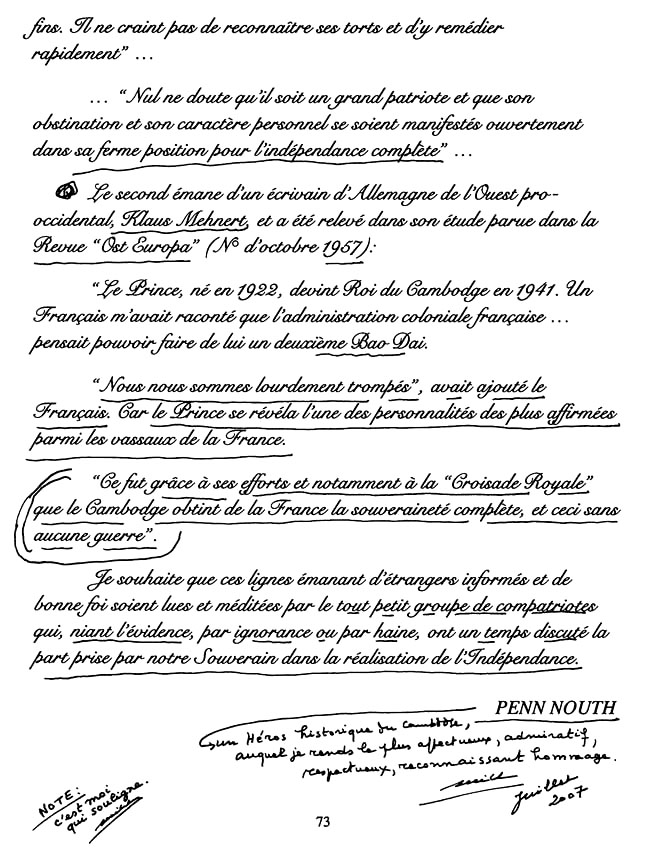 fins. Il ne craint pas de reconnaître ses torts et d'y remédier
rapidement" ...
... "Nul ne doute qu'il soit un grand patriote et que son
obstination et son caractère personnel se soient manifestés ouvertement
dans sa ferme position pour l'indépendance complète" ...
Le second émane d'un écrivain d'Allemagne de l'Ouest pro-
occidental, Klaus Mehnert, et a été relevé dans son étude parue dans la
Revue "Ost Europa" (N° d'octobre 1957):
"Le Prince, né en 1922, devint Roi du Cambodge en 1941. Un
Français m'avait raconté que l'administration coloniale française ...
pensait pouvoir faire de lui un deuxième Bao Dai.
"Nous nous sommes lourdement trompés", avait ajouté le
Français. Car le Prince se révéla l'une des personnalités des plus affirmées
parmi les vassaux de la France.
"Ce fut grâce à ses efforts et notamment à la "Croisade Royale"
que le Cambodge obtint de la France la souveraineté complète, et ceci sans
aucune guerre".
Je souhaite que ces lignes émanant d'étrangers informés et de
bonne foi soient lues et méditées par le tout petit groupe de compatriotes
qui, niant l'évidence, par ignorance ou par haine, ont un temps discuté la
part prise par notre Souverain dans la réalisation de l'Indépendance.
PENN NOUTH
un Héros historique du Cambodge,
auquel je rends le plus affectueux, admiratif,
respectueux, reconnaissant hommage.
juillet
2007
NOTE:
c'est moi
qui souligne.
73